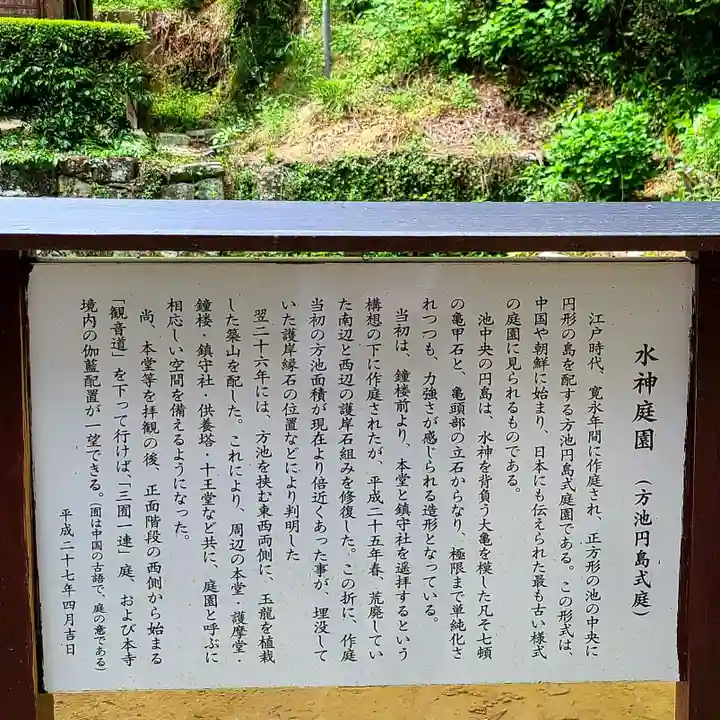 水神庭園 （方池円島式庭）
江戸時代、寛永年間に作庭され、正方形の池の中央に
円形の島を配する方池円島式庭園である。この形式は、
中国や朝鮮に始まり、日本にも伝えられた最も古い様式
の庭園に見られるものである。
池中央の円島は、水神を背負う大亀を模した凡そ七頓
の亀甲石と、亀頭部の立石からなり、極限まで単純化さ
れつつも、力強さが感じられる造形となっている。
当初は、鐘楼前より、本堂と鎮守社を遥拝するという
構想の下に作庭されたが、平成二十五年春、荒廃してい
た南辺と西辺の護岸石組みを修復した。この折に、作庭
当初の方池面積が現在より倍近くあった事が、埋没して
いた護岸縁石の位置などにより判明した
翌二十六年には、方池を挟む東西両側に、玉龍を植栽
した築山を配した。これにより、周辺の本堂・護摩堂・
鐘楼・鎮守社・供養塔・十王堂など共に、庭園と呼ぶに
相応しい空間を備えるようになった。
尚、本堂等を拝観の後、正面階段の西側から始まる
「観音道」を下って行けば、「三囿一連」庭、および本寺
境内の伽藍配置が一望できる。（囿は中国の古語で、庭の意である）
平成二十七年四月吉日